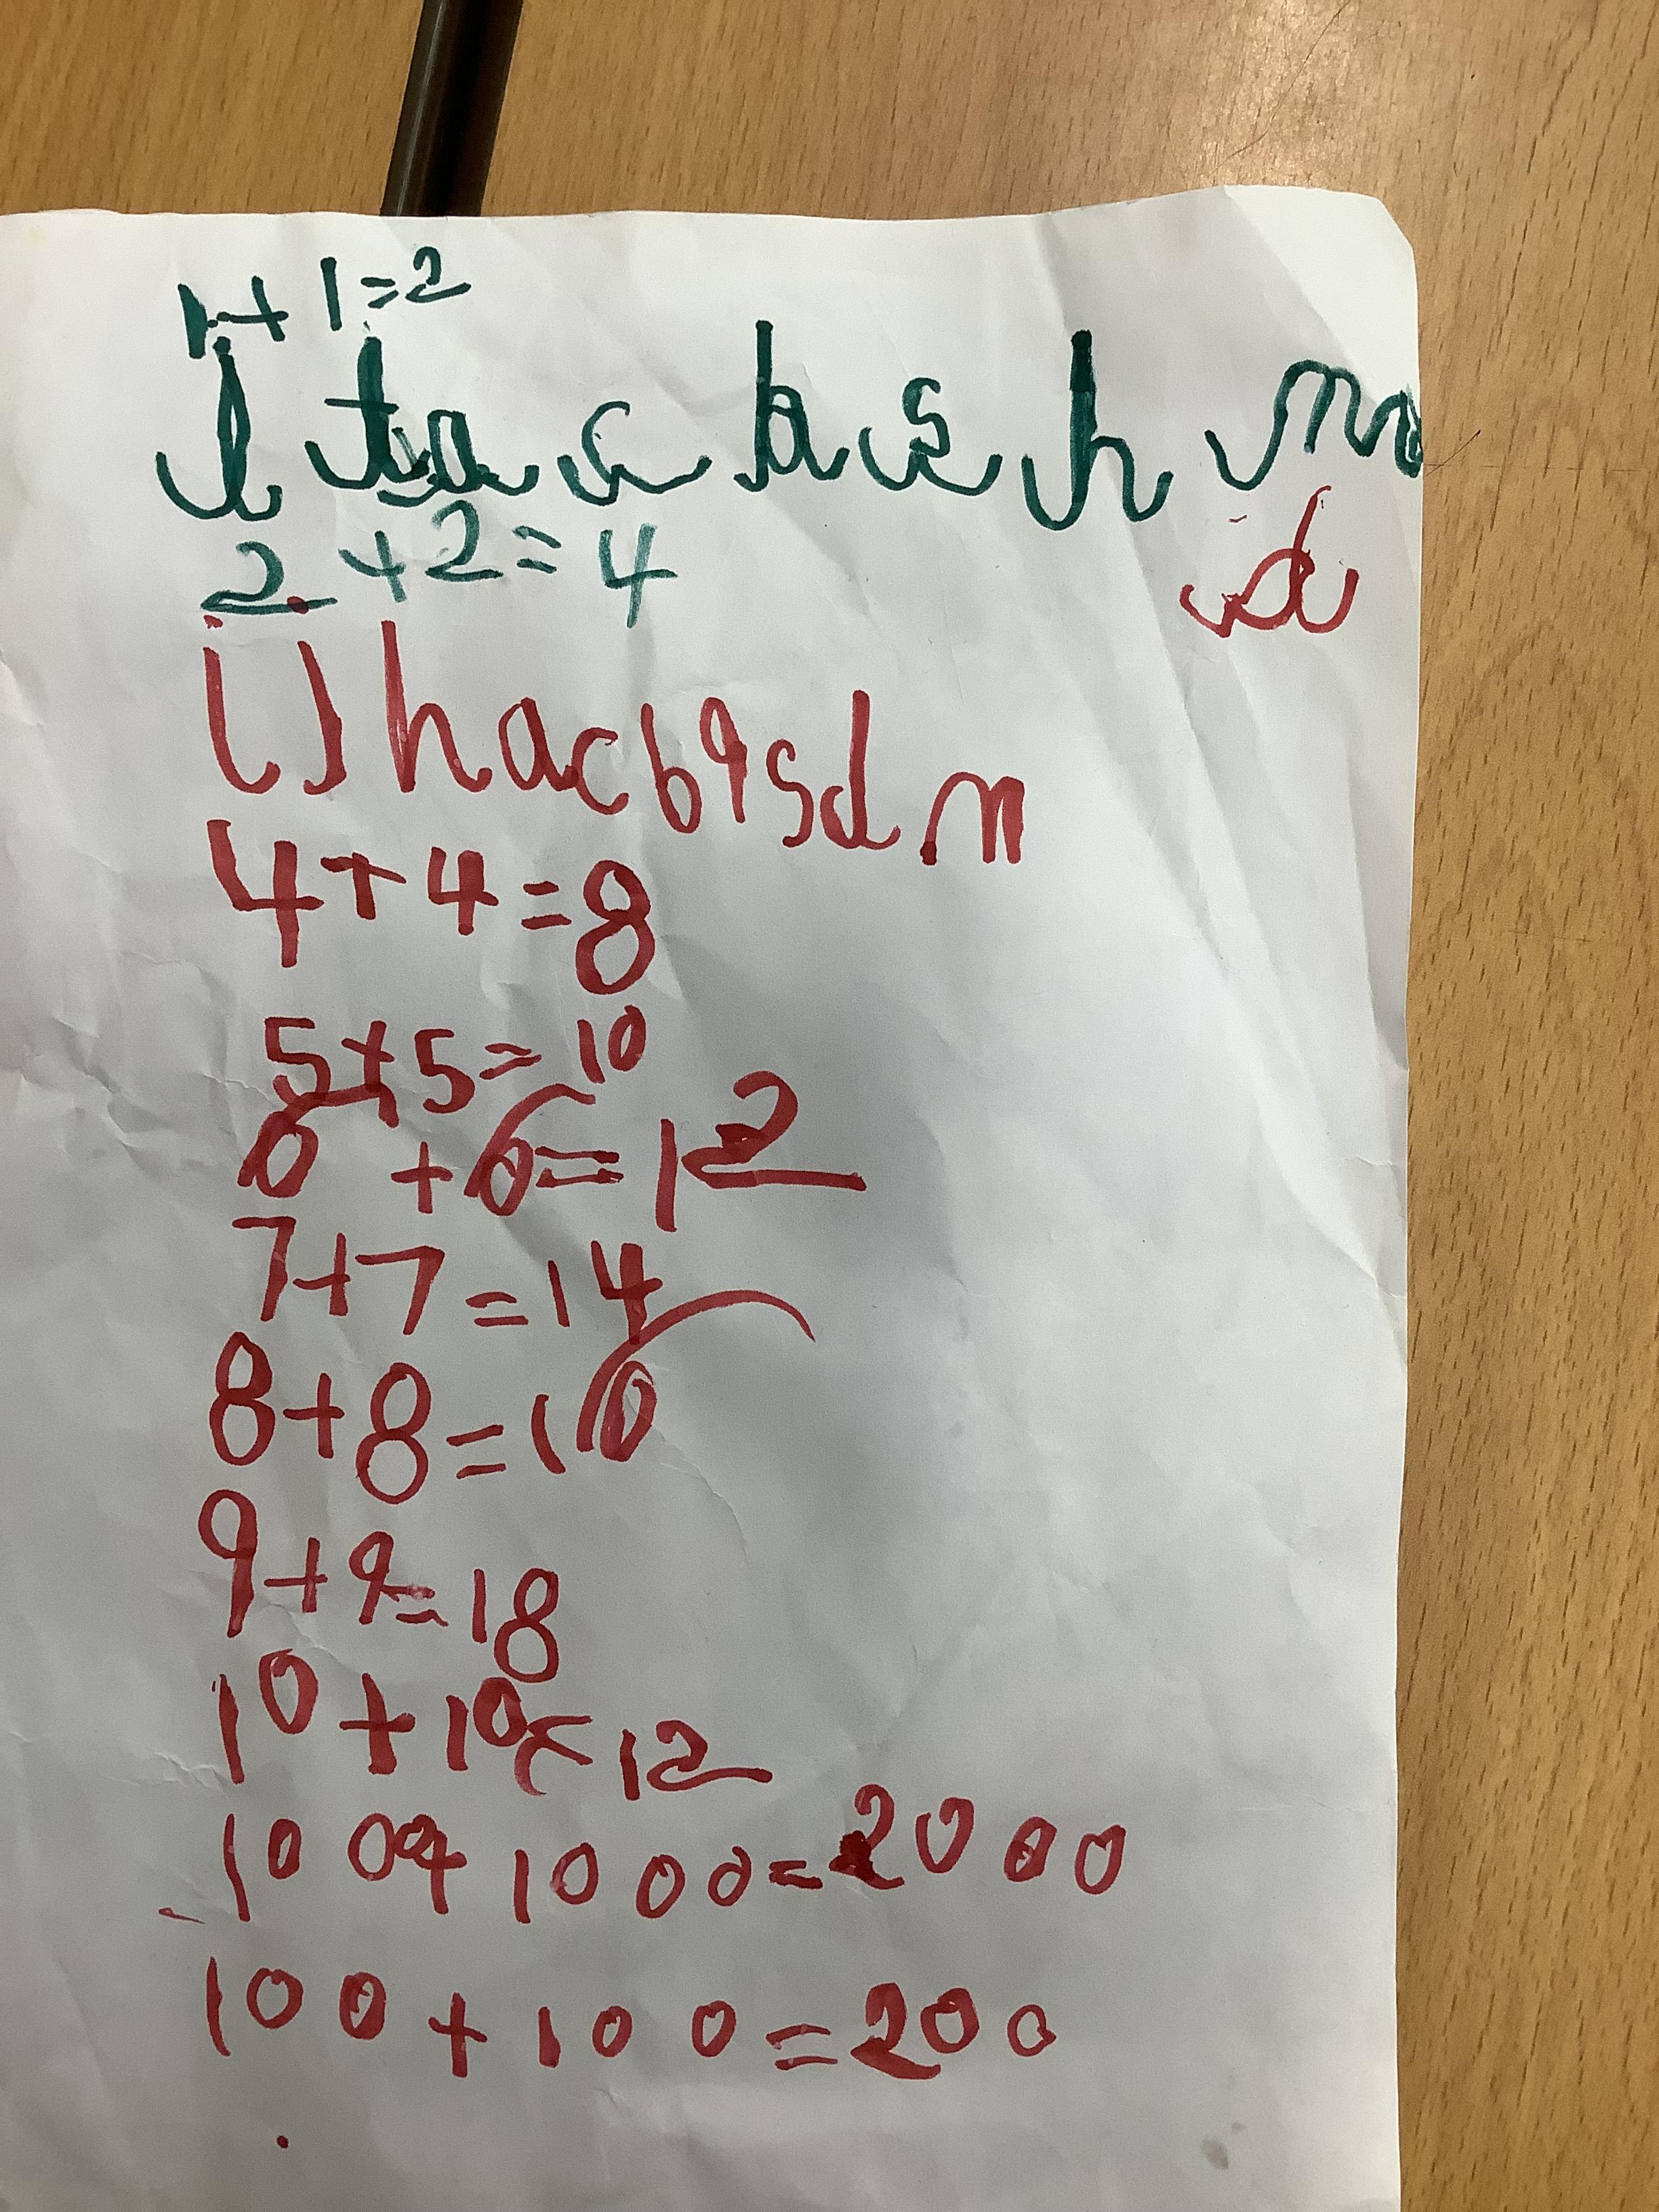 1+1=2
i t a c b s h m
2+2=4
d
i j h a c b 9 s d m
4+4=8
5+5=10
6+6=12
7+7=14
8+8=16
9+9=18
10+10=12
1000+1000=2000
100+100=200